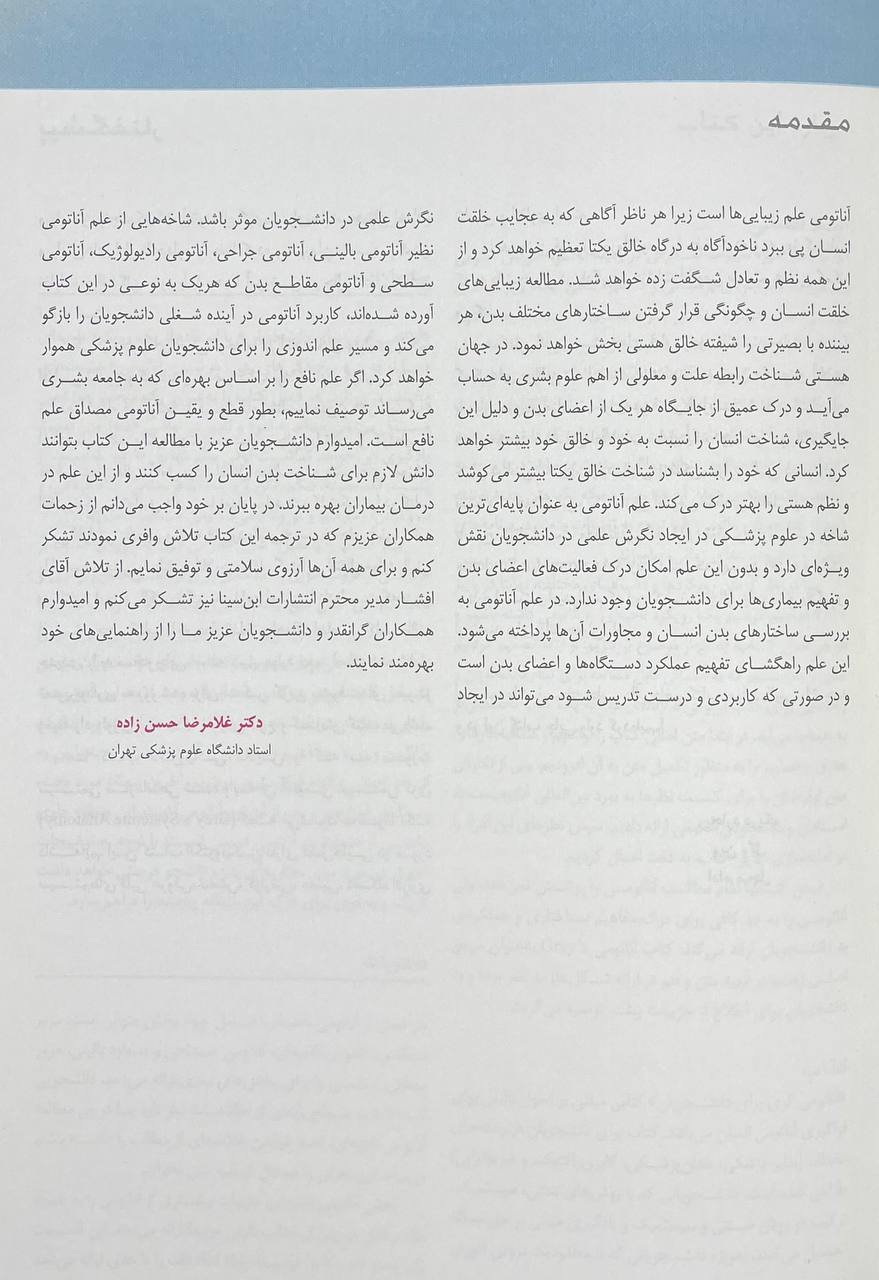 مقدمه
آناتومی علم زیبایی‌ها است زیرا هر ناظر آگاهی که به عجایب خلقت
انسان پی ببرد ناخودآگاه به درگاه خالق یکتا تعظیم خواهد کرد و از
این همه نظم و تعادل شگفت زده خواهد شد. مطالعه زیبایی‌های
خلقت انسان و چگونگی قرار گرفتن ساختارهای مختلف بدن، هر
بیننده با بصیرتی را شیفته خالق هستی بخش خواهد نمود. در جهان
هستی شناخت رابطه علت و معلولی از اهم علوم بشری به حساب
می‌آید و درک عمیق از جایگاه هر یک از اعضای بدن و دلیل این
جایگیری، شناخت انسان را نسبت به خود و خالق خود بیشتر خواهد
کرد. انسانی که خود را بشناسد در شناخت خالق یکتا بیشتر می‌کوشد
و نظم هستی را بهتر درک می‌کند. علم آناتومی به عنوان پایه‌ای‌ترین
شاخه در علوم پزشکی در ایجاد نگرش علمی در دانشجویان نقش
ویژه‌ای دارد و بدون این علم امکان درک فعالیت‌های اعضای بدن
و تفهیم بیماری‌ها برای دانشجویان وجود ندارد. در علم آناتومی به
بررسی ساختارهای بدن انسان و مجاورات آن‌ها پرداخته می‌شود.
این علم راهگشای تفهیم عملکرد دستگاه‌ها و اعضای بدن است
و در صورتی که کاربردی و درست تدریس شود می‌تواند در ایجاد
نگرش علمی در دانشجویان موثر باشد. شاخه‌هایی از علم آناتومی
نظیر آناتومی بالینی، آناتومی جراحی، آناتومی رادیولوژیک، آناتومی
سطحی و آناتومی مقاطع بدن که هریک به نوعی در این کتاب
آورده شده‌اند، کاربرد آناتومی در آینده شغلی دانشجویان را بازگو
می‌کند و مسیر علم اندوزی را برای دانشجویان علوم پزشکی هموار
خواهد کرد. اگر علم نافع را بر اساس بهره‌ای که به جامعه بشری
می‌رساند توصیف نماییم، بطور قطع و یقین آناتومی مصداق علم
نافع است. امیدوارم دانشجویان عزیز با مطالعه این کتاب بتوانند
دانش لازم برای شناخت بدن انسان را کسب کنند و از این علم در
درمان بیماران بهره ببرند. در پایان بر خود واجب می‌دانم از زحمات
همکاران عزیزم که در ترجمه این کتاب تلاش وافری نمودند تشکر
کنم و برای همه آن‌ها آرزوی سلامتی و توفیق نمایم. از تلاش آقای
افشار مدیر محترم انتشارات ابن‌سینا نیز تشکر می‌کنم و امیدوارم
همکاران گرانقدر و دانشجویان عزیز ما را از راهنمایی‌های خود
بهره‌مند نمایند.
دکتر غلامرضا حسن زاده
استاد دانشگاه علوم پزشکی تهران